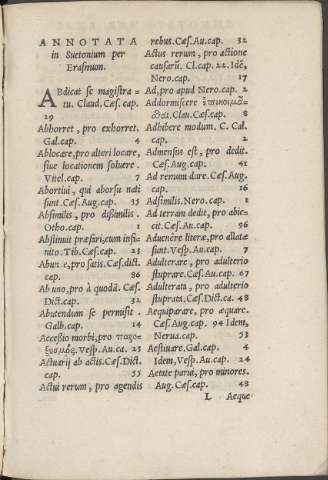 ANNOTATA
in Suetonium per
Erasmum.
ABdicat se magistra-
tu. Claud. Cæs. cap.
29
Abhorret, pro exhorret.
Gal. cap. 4
Ablocare, pro alteri locare,
siue locationem soluere.
Vitel. cap. 7
Abortiui, qui aborsu nati
sunt. Cæs. Aug. cap. 35
Absimilis, pro dissimilis.
Otho. cap. 1
Abstinuit præfari, cum infi-
nito. Tib. Cæs. cap. 23
Abunde, pro satis. Cæs. dict.
cap. 86
Ab uno, pro à quodã. Cæs.
Dict. cap. 32
Abutendum se permisit.
Galb. cap. 14
Accessio morbi, pro παρο-
ξυσμός. Vesp. Au. ca. 23
Actuarij ab actis. Cæs. Dict.
cap. 55
Actui rerum, pro agendis
rebus. Cæs. Au. cap. 32
Actus rerum, pro actione
causarũ. Cl. cap. 22. Idẽ,
Nero. cap. 17
Ad, pro apud Nero. cap. 2
Addormiscere
Clau. Cæs. cap. 8
Adhibere modum. C. Cal.
cap. 2
Admensus est, pro dedit.
Cæs. Aug. cap. 41
Ad remum dare. Cæs. Aug.
cap. 16
Adsimilis. Nero. cap. 1
Ad terram dedit, pro abie-
cit. Cæs. Au. cap. 96
Aducẽre literæ, pro allatæ
sunt. Vesp. Au. cap. 7
Adulterare, pro adulterio
stuprare. Cæs. Au. cap. 67
Adulterata, pro adulterio
stuprata. Cæs. Dict. ca. 48
Aequiparare, pro æquare.
Cæs. Aug. cap. 94 Idem,
Nerua. cap. 53
Aestiuare. Gal. cap. 4
Idem, Vesp. Au. cap. 24
Aetate parua, pro minores.
Aug. Cæs. cap. 48
L Aeque